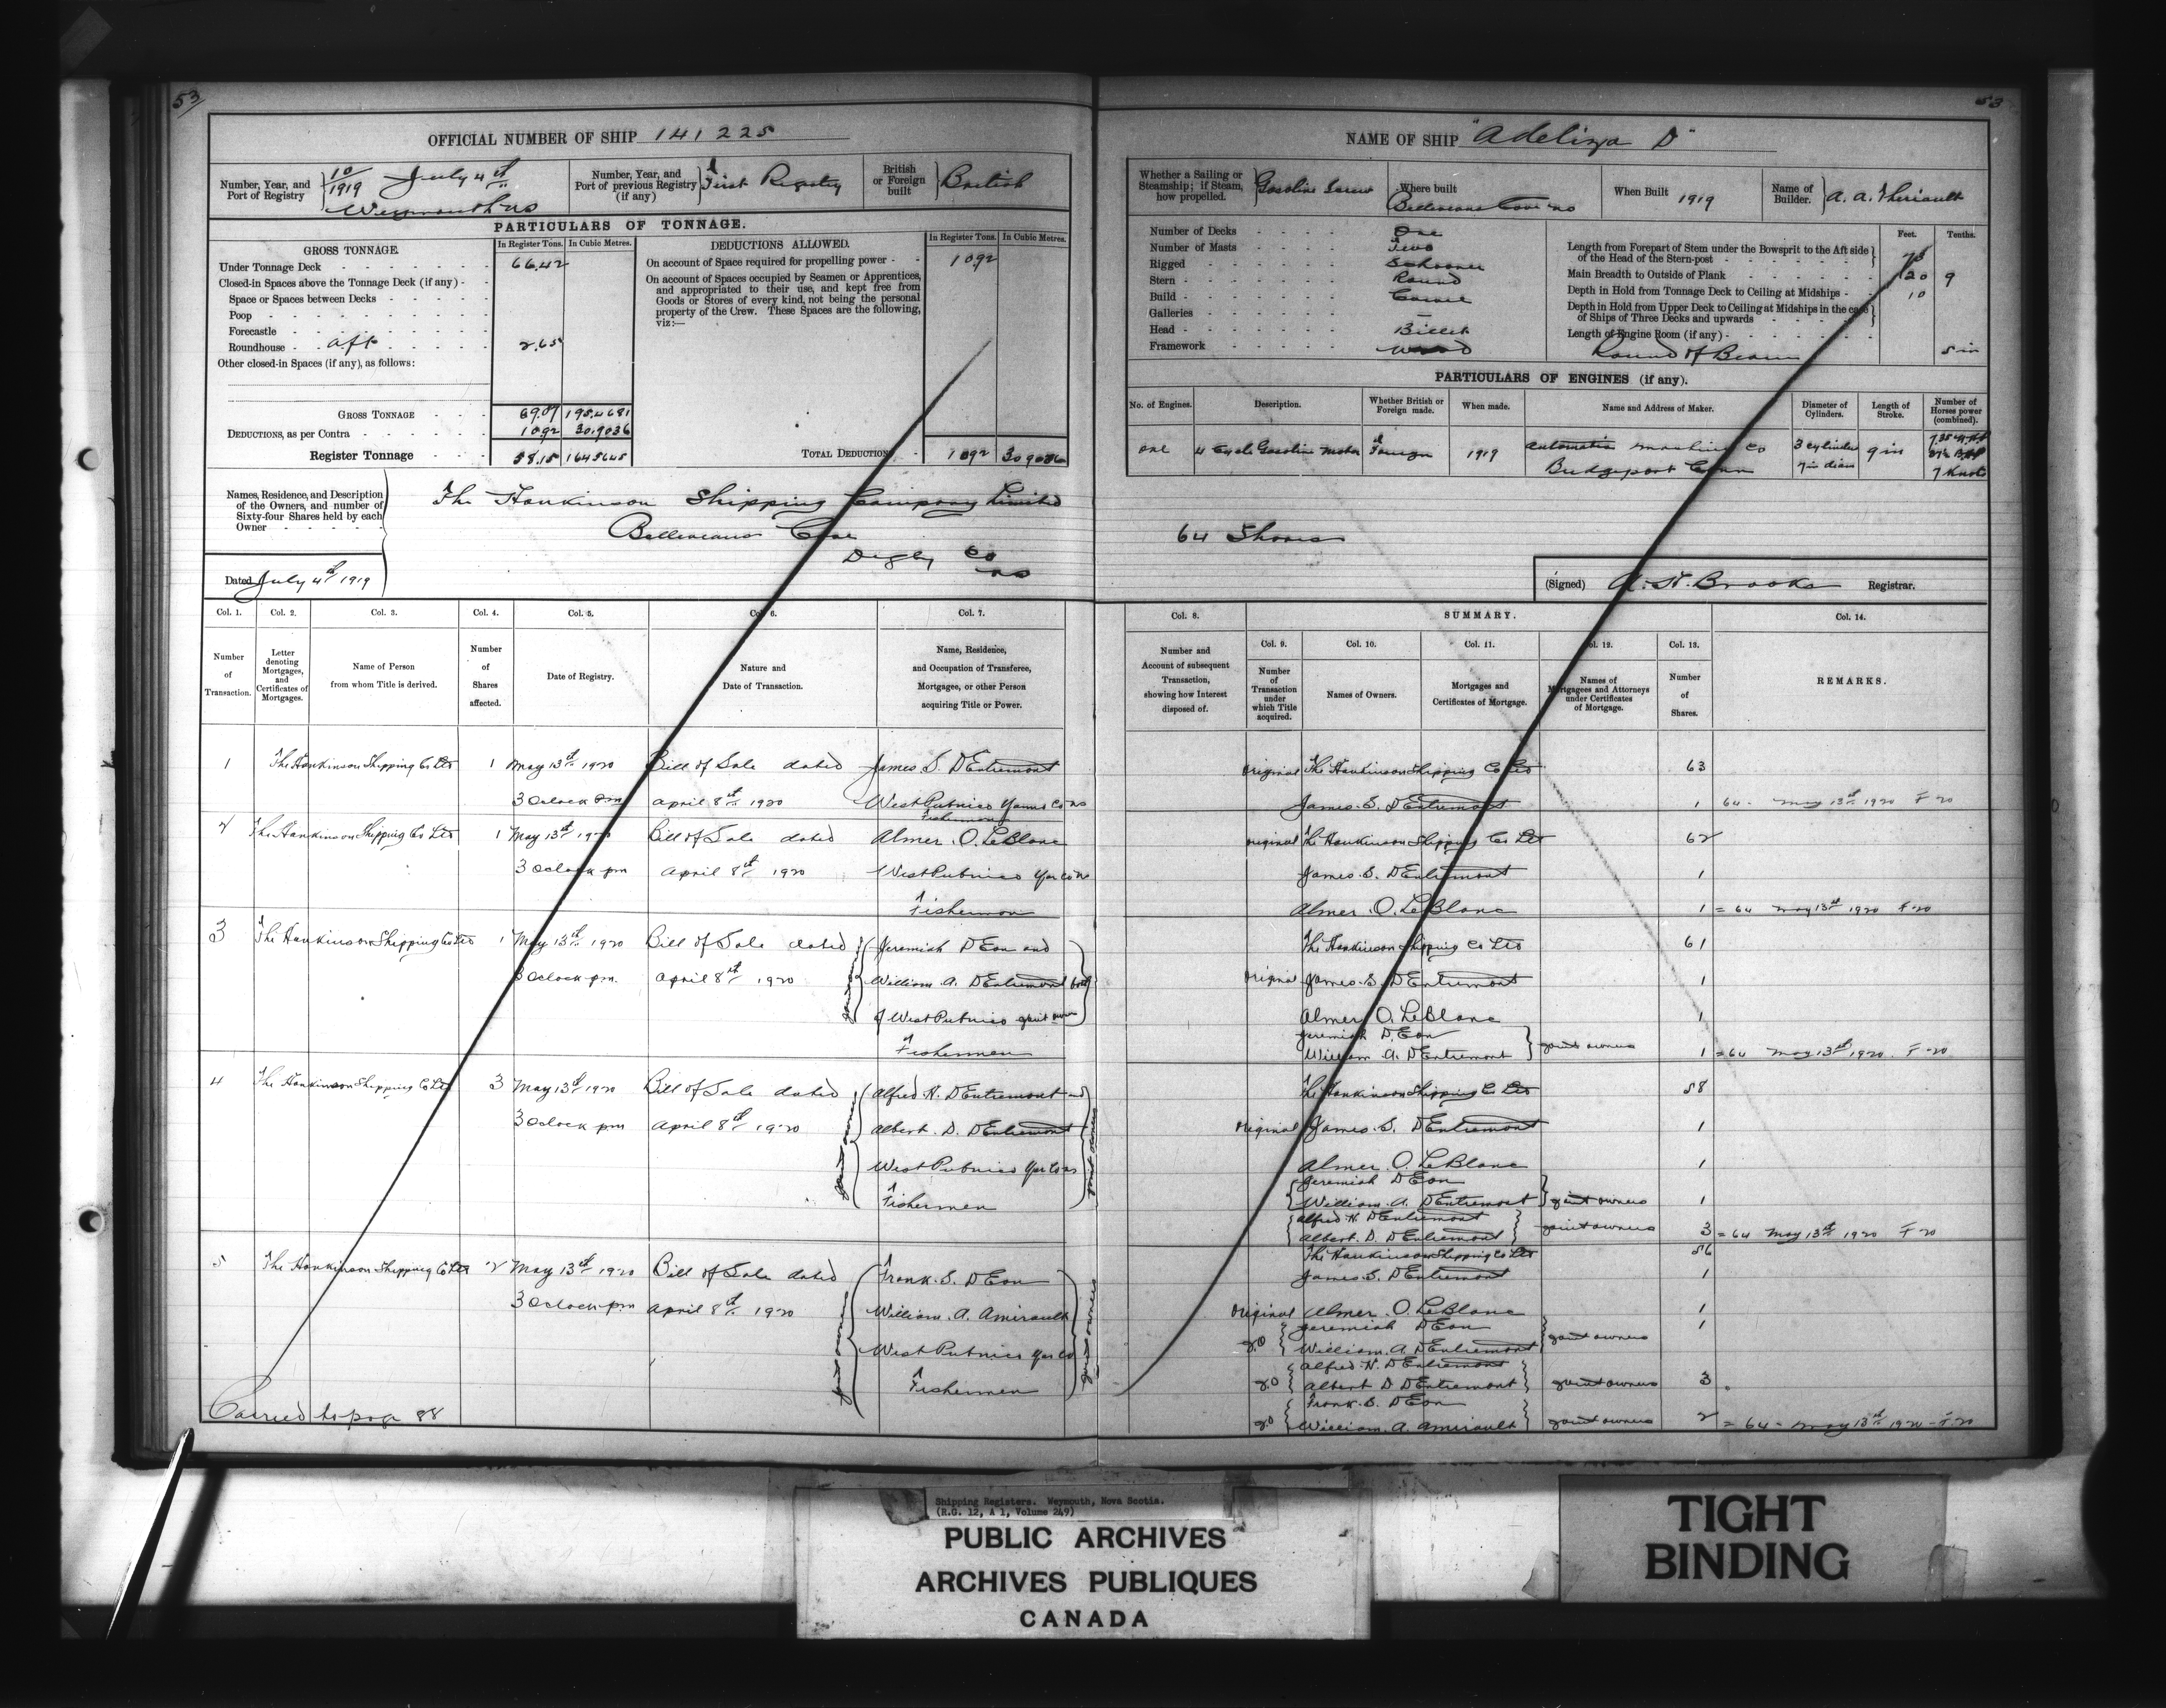 53
OFFICIAL NUMBER OF SHIP 141225
Number, Year, and Port of Registry
10/1919 July 4th
Weymouth NS
Number, Year, and Port of previous Registry (if any)
First Registry
British or Foreign built
British
PARTICULARS OF TONNAGE.
GROSS TONNAGE.
In Register Tons.
In Cubic Metres.
DEDUCTIONS ALLOWED.
In Register Tons.
In Cubic Metres.
Under Tonnage Deck 66.42
Closed-in Spaces above the Tonnage Deck (if any)
Space or Spaces between Decks
Poop
Forecastle
Roundhouse aft 2.65
Other closed-in Spaces (if any), as follows:
On account of Space required for propelling power 10.92
On account of Spaces occupied by Seamen or Apprentices,
and appropriated to their use, and kept free from
Goods or Stores of every kind, not being the personal
property of the Crew. These Spaces are the following,
viz:—
GROSS TONNAGE 69.07 195.4681
DEDUCTIONS, as per Contra 10.92 30.9036
Register Tonnage 58.15 164.5645
TOTAL DEDUCTIONS 10.92 30.9036
Names, Residence, and Description
of the Owners, and number of
Sixty-four Shares held by each
Owner
The Hankinson Shipping Company Limited
Belliveaus Cove
Digby Co
NS
Dated July 4th 1919
Col. 1.
Number of Transaction.
Col. 2.
Letter denoting Mortgages, and Certificates of Mortgages.
Col. 3.
Name of Person from whom Title is derived.
Col. 4.
Number of Shares affected.
Col. 5.
Date of Registry.
Col. 6.
Nature and Date of Transaction.
Col. 7.
Name, Residence, and Occupation of Transferee, Mortgagee, or other Person acquiring Title or Power.
1 The Hankinson Shipping Co Ltd 1 May 13th 1920 Bill of Sale dated James S. DEntremont
3 Oclock pm April 8th 1920 West Pubnico Yarmo Co NS
Fisherman
2 The Hankinson Shipping Co Ltd 1 May 13th 1920 Bill of Sale dated Almer O. LeBlanc
3 Oclock pm April 8th 1920 West Pubnico Yar Co NS
Fisherman
3 The Hankinson Shipping Co Ltd 1 May 13th 1920 Bill of Sale dated Jeremiah DEon and
3 Oclock pm April 8th 1920 William A. DEntremont both
of West Pubnico joint owners
Fishermen
4 The Hankinson Shipping Co Ltd 3 May 13th 1920 Bill of Sale dated Alfred H. DEntremont and
3 Oclock pm April 8th 1920 Albert D. DEntremont
West Pubnico Yar Co NS
Fishermen
joint owners
5 The Hankinson Shipping Co Ltd 2 May 13th 1920 Bill of Sale dated Frank S. DEon
3 Oclock pm April 8th 1920 William A. Amirault
West Pubnico Yar Co
Fishermen
joint owners
Carried to page 88
53
NAME OF SHIP "Adeliza D"
Whether a Sailing or Steamship; if Steam, how propelled.
Gasoline Screw
Where built
Belliveaus Cove NS
When Built 1919
Name of Builder.
A. A. Theriault
Number of Decks One
Number of Masts Two
Rigged Schooner
Stern Round
Build Carvel
Galleries —
Head Billet
Framework Wood
Feet.
Tenths.
Length from Forepart of Stem under the Bowsprit to the Aft side
of the Head of the Stern-post
Main Breadth to Outside of Plank 20 9
Depth in Hold from Tonnage Deck to Ceiling at Midships 10
Depth in Hold from Upper Deck to Ceiling at Midships in the case
of Ships of Three Decks and upwards
Length of Engine Room (if any)
Round of Beam 5 in
PARTICULARS OF ENGINES (if any).
No. of Engines.
Description.
Whether British or Foreign made.
When made.
Name and Address of Maker.
Diameter of Cylinders.
Length of Stroke.
Number of Horses power (combined).
One 4 Cycle Gasoline Motor Foreign 1919 Automatic Machine Co 3 Cylinder 9 in
Bridgeport Conn 7 in diam 7 Knots
64 Shares
(Signed) A. H. Brooks Registrar.
Col. 8.
Number and Account of subsequent Transaction, showing how Interest disposed of.
SUMMARY.
Col. 9.
Number of Transaction under which Title acquired.
Col. 10.
Names of Owners.
Col. 11.
Mortgages and Certificates of Mortgage.
Col. 12.
Names of Mortgagees and Attorneys under Certificates of Mortgage.
Col. 13.
Number of Shares.
Col. 14.
REMARKS.
Original The Hankinson Shipping Co Ltd 63
James S. DEntremont 1 64 - May 13th 1920 F 20
Original The Hankinson Shipping Co Ltd 62
James S. DEntremont 1
Almer O. LeBlanc 1 = 64 May 13th 1920 F 20
The Hankinson Shipping Co Ltd 61
Original James S. DEntremont 1
Almer O. LeBlanc 1
Jeremiah DEon
William A. DEntremont joint owners 1 = 64 May 13th 1920 F 20
The Hankinson Shipping Co Ltd 58
Original James S. DEntremont 1
Almer O. LeBlanc 1
Jeremiah DEon
William A. DEntremont joint owners 1
Alfred H. DEntremont
Albert D. DEntremont joint owners 3 = 64 May 13th 1920 F 20
The Hankinson Shipping Co Ltd 56
James S. DEntremont 1
Original Almer O. LeBlanc 1
Jeremiah DEon 1
William A. DEntremont joint owners
Alfred H. DEntremont
Albert D DEntremont joint owners 3
Frank S. DEon
William A. Amirault joint owners 2 = 64 - May 13th 1920 - F 20
Shipping Registers. Weymouth, Nova Scotia.
(R.G. 12, A 1, Volume 249)
PUBLIC ARCHIVES
ARCHIVES PUBLIQUES
CANADA
TIGHT
BINDING